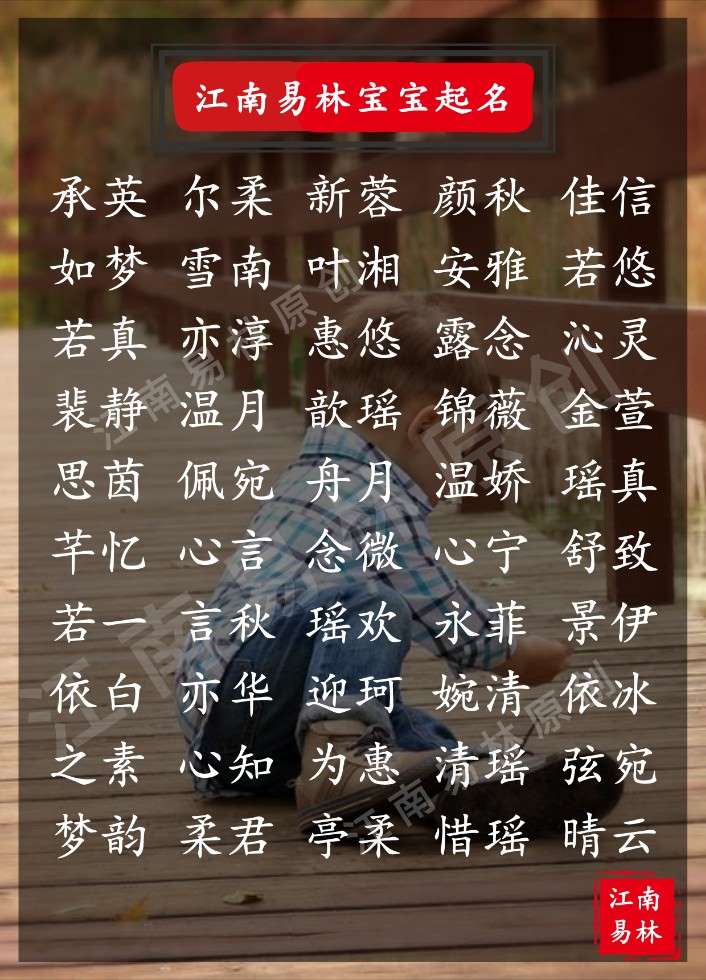 江南易林宝宝起名
承英 尔柔 新蓉 颜秋 佳信
如梦 雪南 叶湘 安雅 若悠
若真 亦淳 惠悠 露念 沁灵
裴静 温月 歆瑶 锦薇 金萱
思茵 佩宛 舟月 温娇 瑶真
芊忆 心言 念微 心宁 舒致
若一 言秋 瑶欢 永菲 景伊
依白 亦华 迎珂 婉清 依冰
之素 心知 为惠 清瑶 弦宛
梦韵 柔君 亭柔 惜瑶 晴云
江南易林原创
江南易林原创
江南易林原创
江南
易林